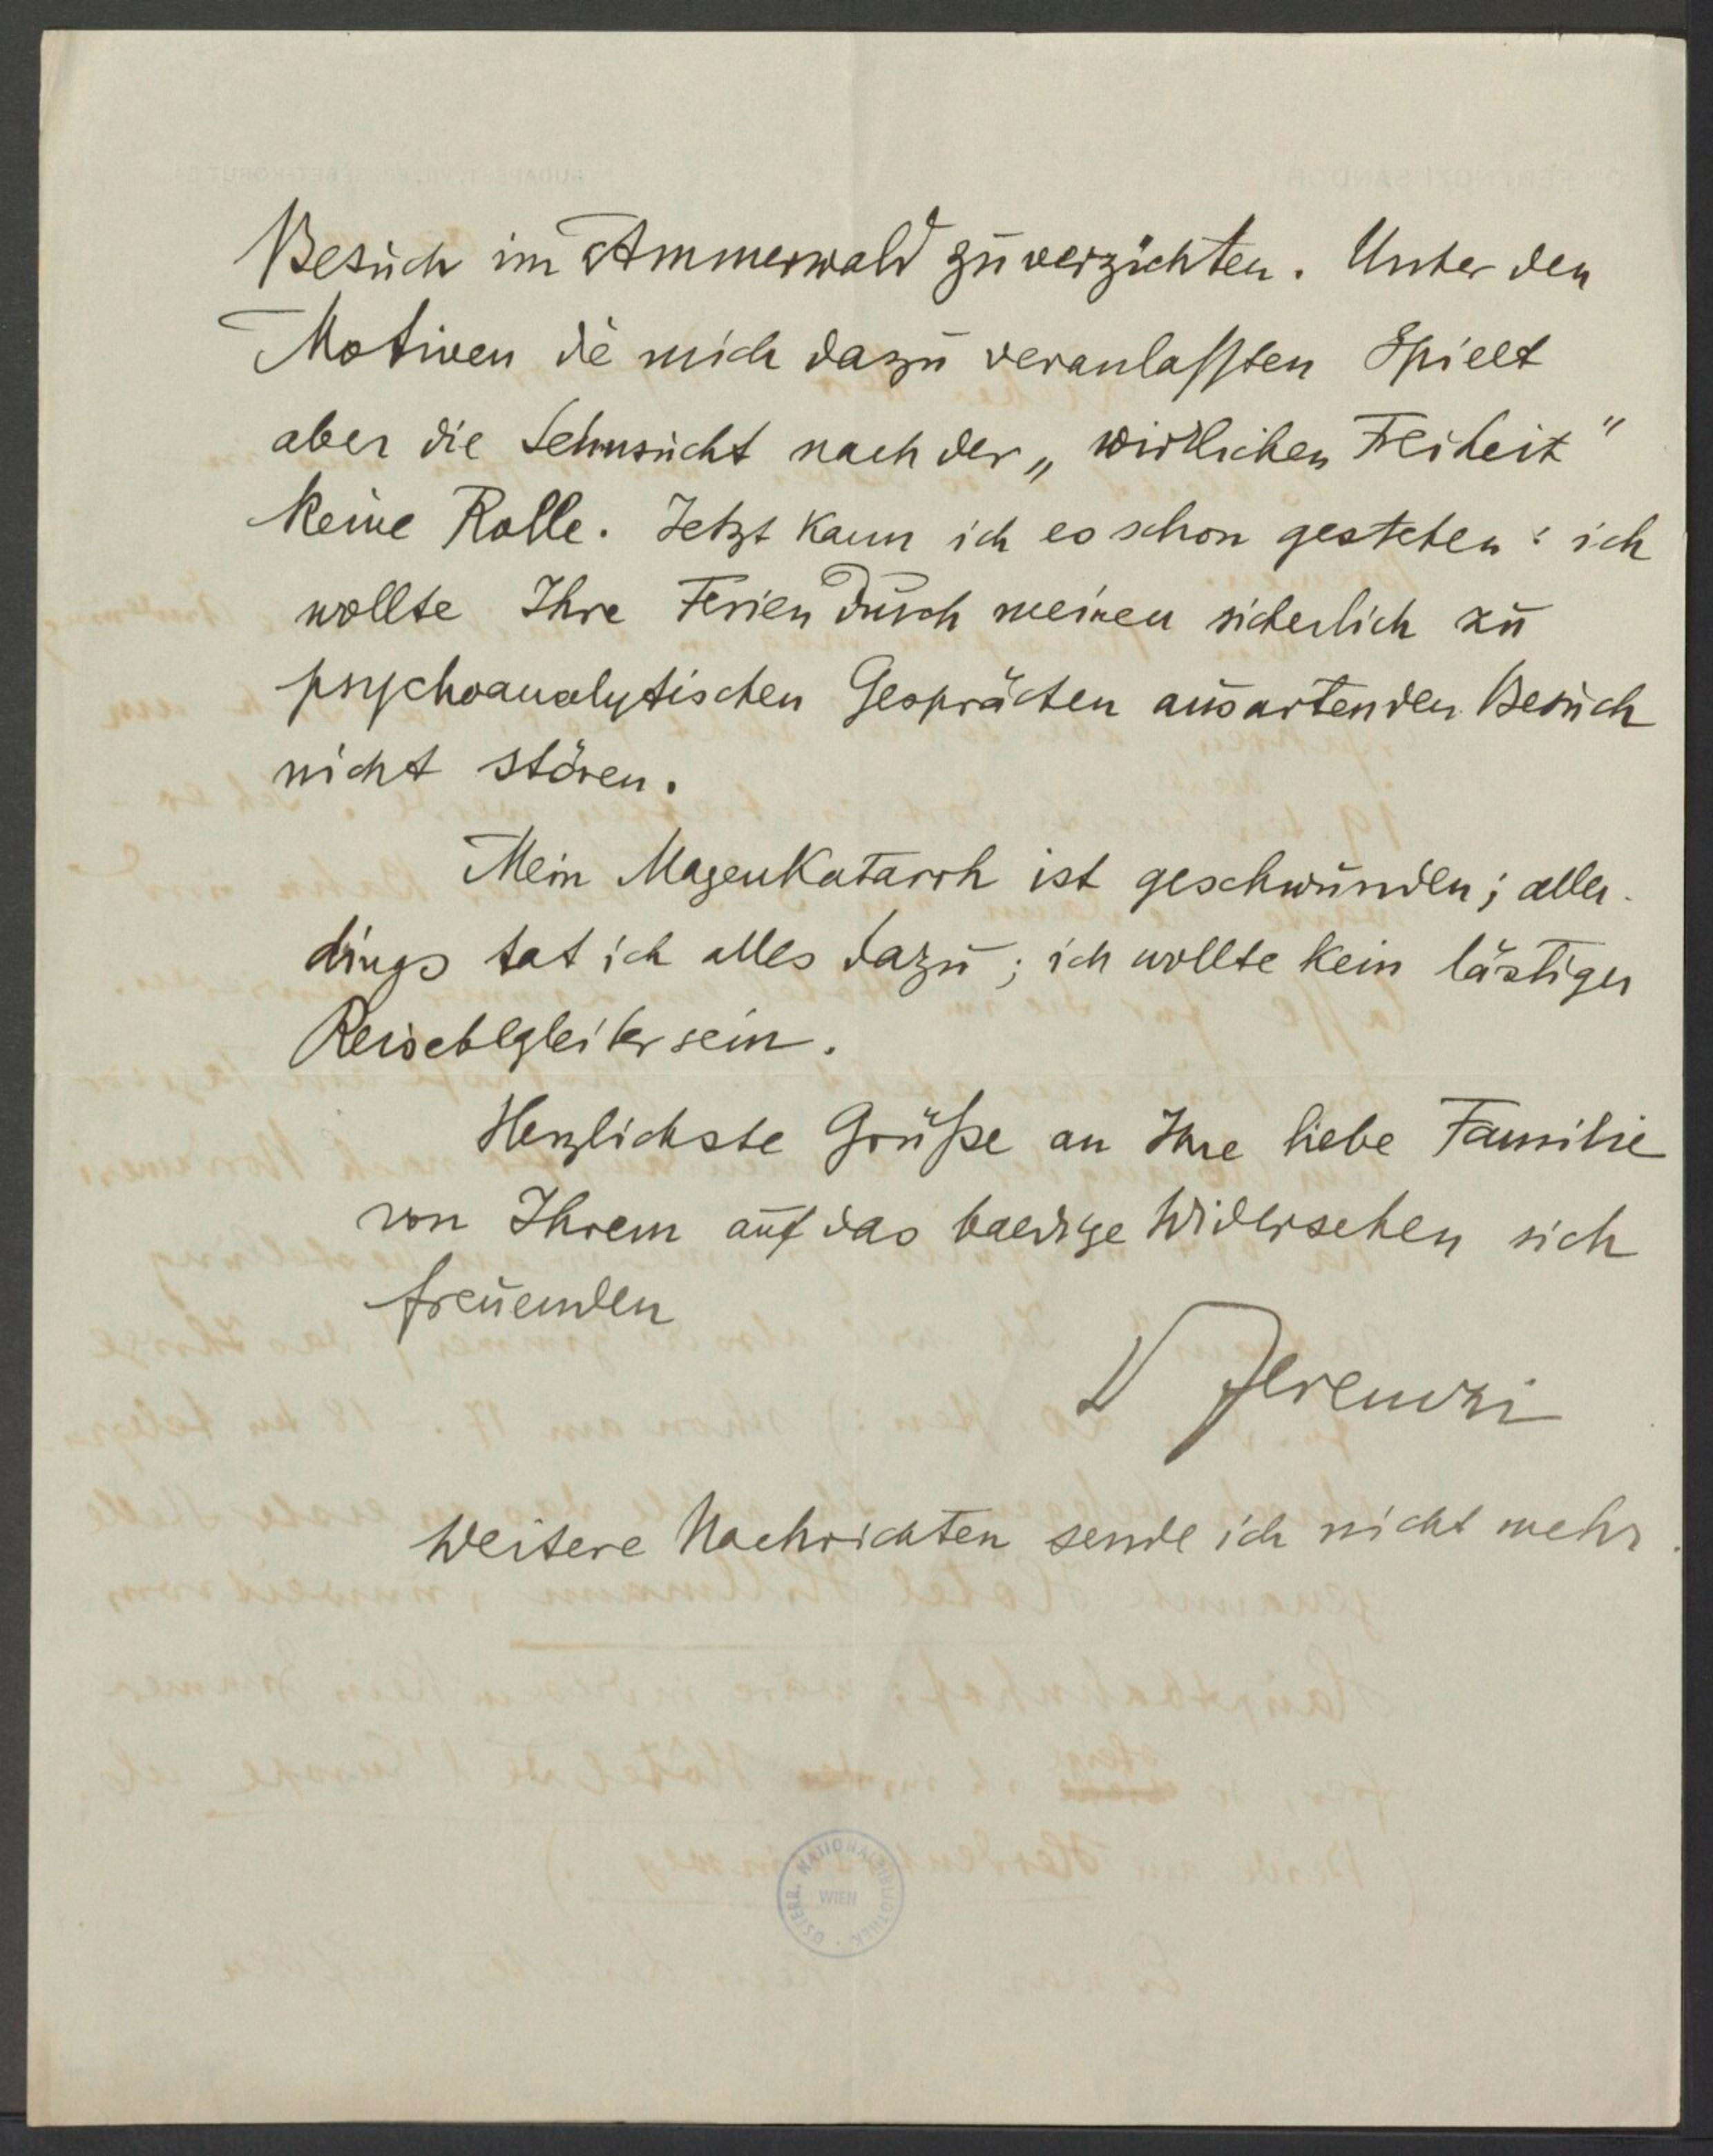 Besuch im Ammerwald zu verzichten. Unter den
Motiven die mich dazu veranlassten Spielt
aber die Sehnsucht nach der „wirklichen Freiheit"
keine Rolle. Jetzt kann ich es schon gestehen: ich
wollte Ihre Ferien durch meinen sicherlich zu
psychoanalytischen Gesprächen ausartenden Besuch
nicht stören.
Mein Magenkatarrh ist geschwunden; aller-
dings tat ich alles dazu; ich wollte kein lästiger
Reisebegleiter sein.
Herzlichste Grüße an Ihre liebe Familie
von Ihrem auf das baldige Widersehen sich
freuenden
D Ferenczi
Weitere Nachrichten sende ich nicht mehr.
ÖSTERR. NATIONALBIBLIOTHEK
WIEN